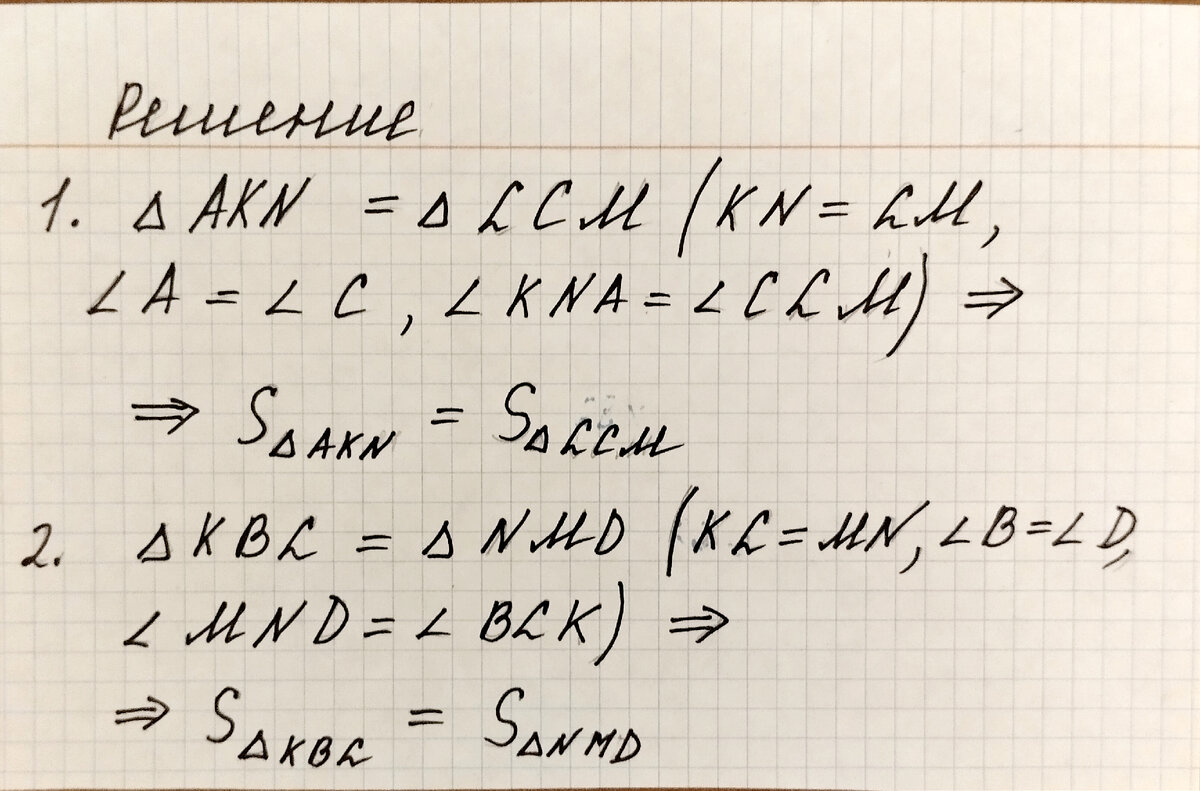 Решение
1. Δ AKN = Δ LCM (KN = LM,
∠A = ∠C, ∠KNA = ∠CLM) ⇒
⇒ S_ΔAKN = S_ΔLCM
2. ΔKBL = ΔNMD (KL = MN, ∠B = ∠D,
∠MND = ∠BLK) ⇒
⇒ S_ΔKBL = S_ΔNMD